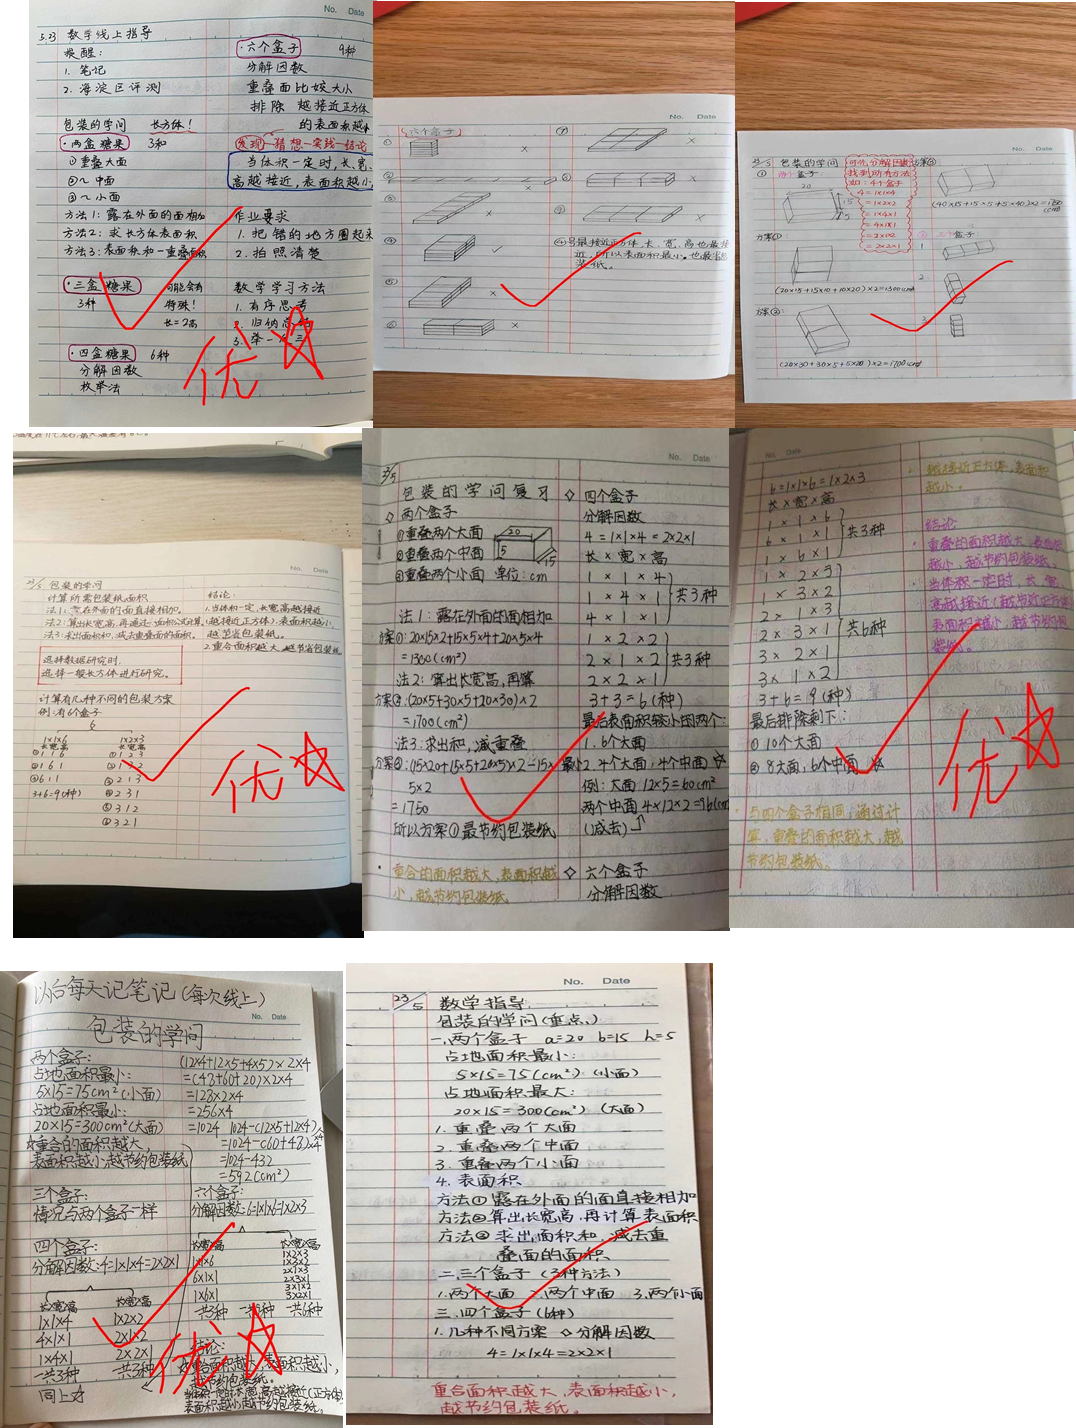 No. Date
5.23 数学线上指导
提醒：
1. 笔记
2. 海淀区评测
包装的学问 长方体！
·两盒糖果 3种
①重叠大面
②～中面
③～小面
方法1：露在外面的面相加
方法2：求长方体表面积
方法3：表面积和－重叠面积
·三盒糖果 可能会有
3种 特殊！
长=2高
·四盒糖果 6种
分解因数
枚举法
·六个盒子 9种
分解因数
重叠面比较大小
排除 越接近正方体
的表面积越小
发现→猜想→实践→结论
当体积一定时，长、宽、
高越接近，表面积越小
作业要求
1. 把错的地方圈起来
2. 拍照清楚
数学学习方法
1. 有序思考
2. 归纳总结
3. 举一反三
优
No. Date
六个盒子
④号最接近正方体，长、宽、高也最接
近，所以表面积最小，也最省包
装纸。
No. Date
包装的学问
① 两个盒子
20
15
5
可先分解因数
找到所有方法
如：4个盒子
4=1×1×4
=1×2×2
=1×4×1
=4×1×1
=2×1×2
=2×2×1
方案②：
(20×15+15×10+10×20)×2=1300cm²
方案③：
(20×30+30×5+5×20)×2=1700cm²
(40×15+15×5+5×40)×2=1750
cm²
三个盒子
No. Date
23/5 包装的学问
计算所需包装纸面积
法1：露在外面的面直接相加。
法2：算出长宽高，再通过面积公式计算。
法3：求出面积和，减去重叠面的面积。
选择数据研究时，
选择一般长方体进行研究。
计算有几种不同的包装方案
例：有6个盒子
6
1×1×6 1×2×3
长宽高 长宽高
①1 1 6 ①1 2 3
②1 6 1 ②1 3 2
③6 1 1 ③2 1 3
3+6=9(种) ④2 3 1
⑤3 1 2
⑥3 2 1
结论：
1.当体积一定，长宽高越接近
（越接近正方体），表面积越小，
越节省包装纸。
2.重合面积越大，越节省包装纸
优
No. Date
23/5
包装的学问复习
◇两个盒子
①重叠两个大面
②重叠两个中面
③重叠两个小面 单位：cm
20
5
15
法1：露在外面的面相加
方案①：20×15×2+15×5×4+20×5×4
=1300(cm²)
法2：算出长宽高，再算
方案②：(20×5+30×5+20×30)×2
=1700(cm²)
法3：求出和，减重叠
方案③：(15×20+15×5+20×5)×2-15×
5×2
=1750
所以方案①最节约包装纸
·重合的面积越大，表面积越
小，越节约包装纸
◇四个盒子
分解因数
4=1×1×4=2×2×1
长×宽×高
1×1×4
1×4×1 共3种
4×1×1
1×2×2
2×1×2 共3种
2×2×1
3+3=6(种)
最后表面积较小的两个：
1. 6个大面
2. 4个大面，4个中面
例：大面12×5=60cm²
两个中面4×12×2=96(cm²)
(减去)
◇六个盒子
分解因数
No. Date
6=1×1×6=1×2×3
长×宽×高
1×1×6
6×1×1 共3种
1×6×1
1×2×3
1×3×2
2×1×3
2×3×1 共6种
3×2×1
3×1×2
3+6=9(种)
最后排除剩下：
①10个大面
②8大面，6个中面
·与四个盒子相同，通过计
算，重叠的面积越大，越
节约包装纸。
越接近正方体，表面积
越小。
结论
重叠的面积越大，表面积
越小，越节约包装纸。
当体积一定时，长、宽、
高越接近(越接近正方体)
表面积越小，越节约包
装纸。
优
以后每天记笔记(每次线上)
No. Date
包装的学问
两个盒子：
占地面积最小：
5×15=75cm²(小面)
占地面积最小：
20×15=300cm²(大面)
☆重合的面积越大，
表面积越小，越节约包装纸
三个盒子：
情况与两个盒子一样
四个盒子：
分解因数：4=1×1×4=2×2×1
长×宽×高 长×宽×高
1×1×4 1×2×2
4×1×1 2×1×2
1×4×1 2×2×1
一共3种 一共3种
同上☆
(12×4+12×5+4×5)×2×4
=(48+60+20)×2×4
=128×2×4
=256×4
=1024 1024-(12×5+12×4)×4
=1024-(60+48)×4
=1024-432
=592(cm²)
六个盒子：
分解因数：6=1×1×6=1×2×3
长×宽×高 长×宽×高
1×1×6
6×1×1
1×6×1
1×2×3
1×3×2
2×1×3
2×3×1
3×1×2
3×2×1
一共3种 一共6种
结论：
☆重合面积越大，表面积越小，
越节约包装纸。
表面积越小越节约包装纸。
优
No. Date
23/5 数学指导
包装的学问(重点)
一.两个盒子 a=20 b=15 h=5
占地面积最小：
5×15=75(cm²)(小面)
占地面积最大：
20×15=300(cm²)(大面)
1. 重叠两个大面
2. 重叠两个中面
3. 重叠两个小面
4. 表面积
方法① 露在外面的面直接相加
方法② 算出长宽高，再计算表面积
方法③ 求出面积和，减去重
叠面的面积
二.三个盒子(3种方法)
1.两个大面 2.两个中面 3.两个小面
三.四个盒子(6种)
1.几种不同方案 ◇分解因数
4=1×1×4=2×2×1
重合面积越大，表面积越小，
越节约包装纸。